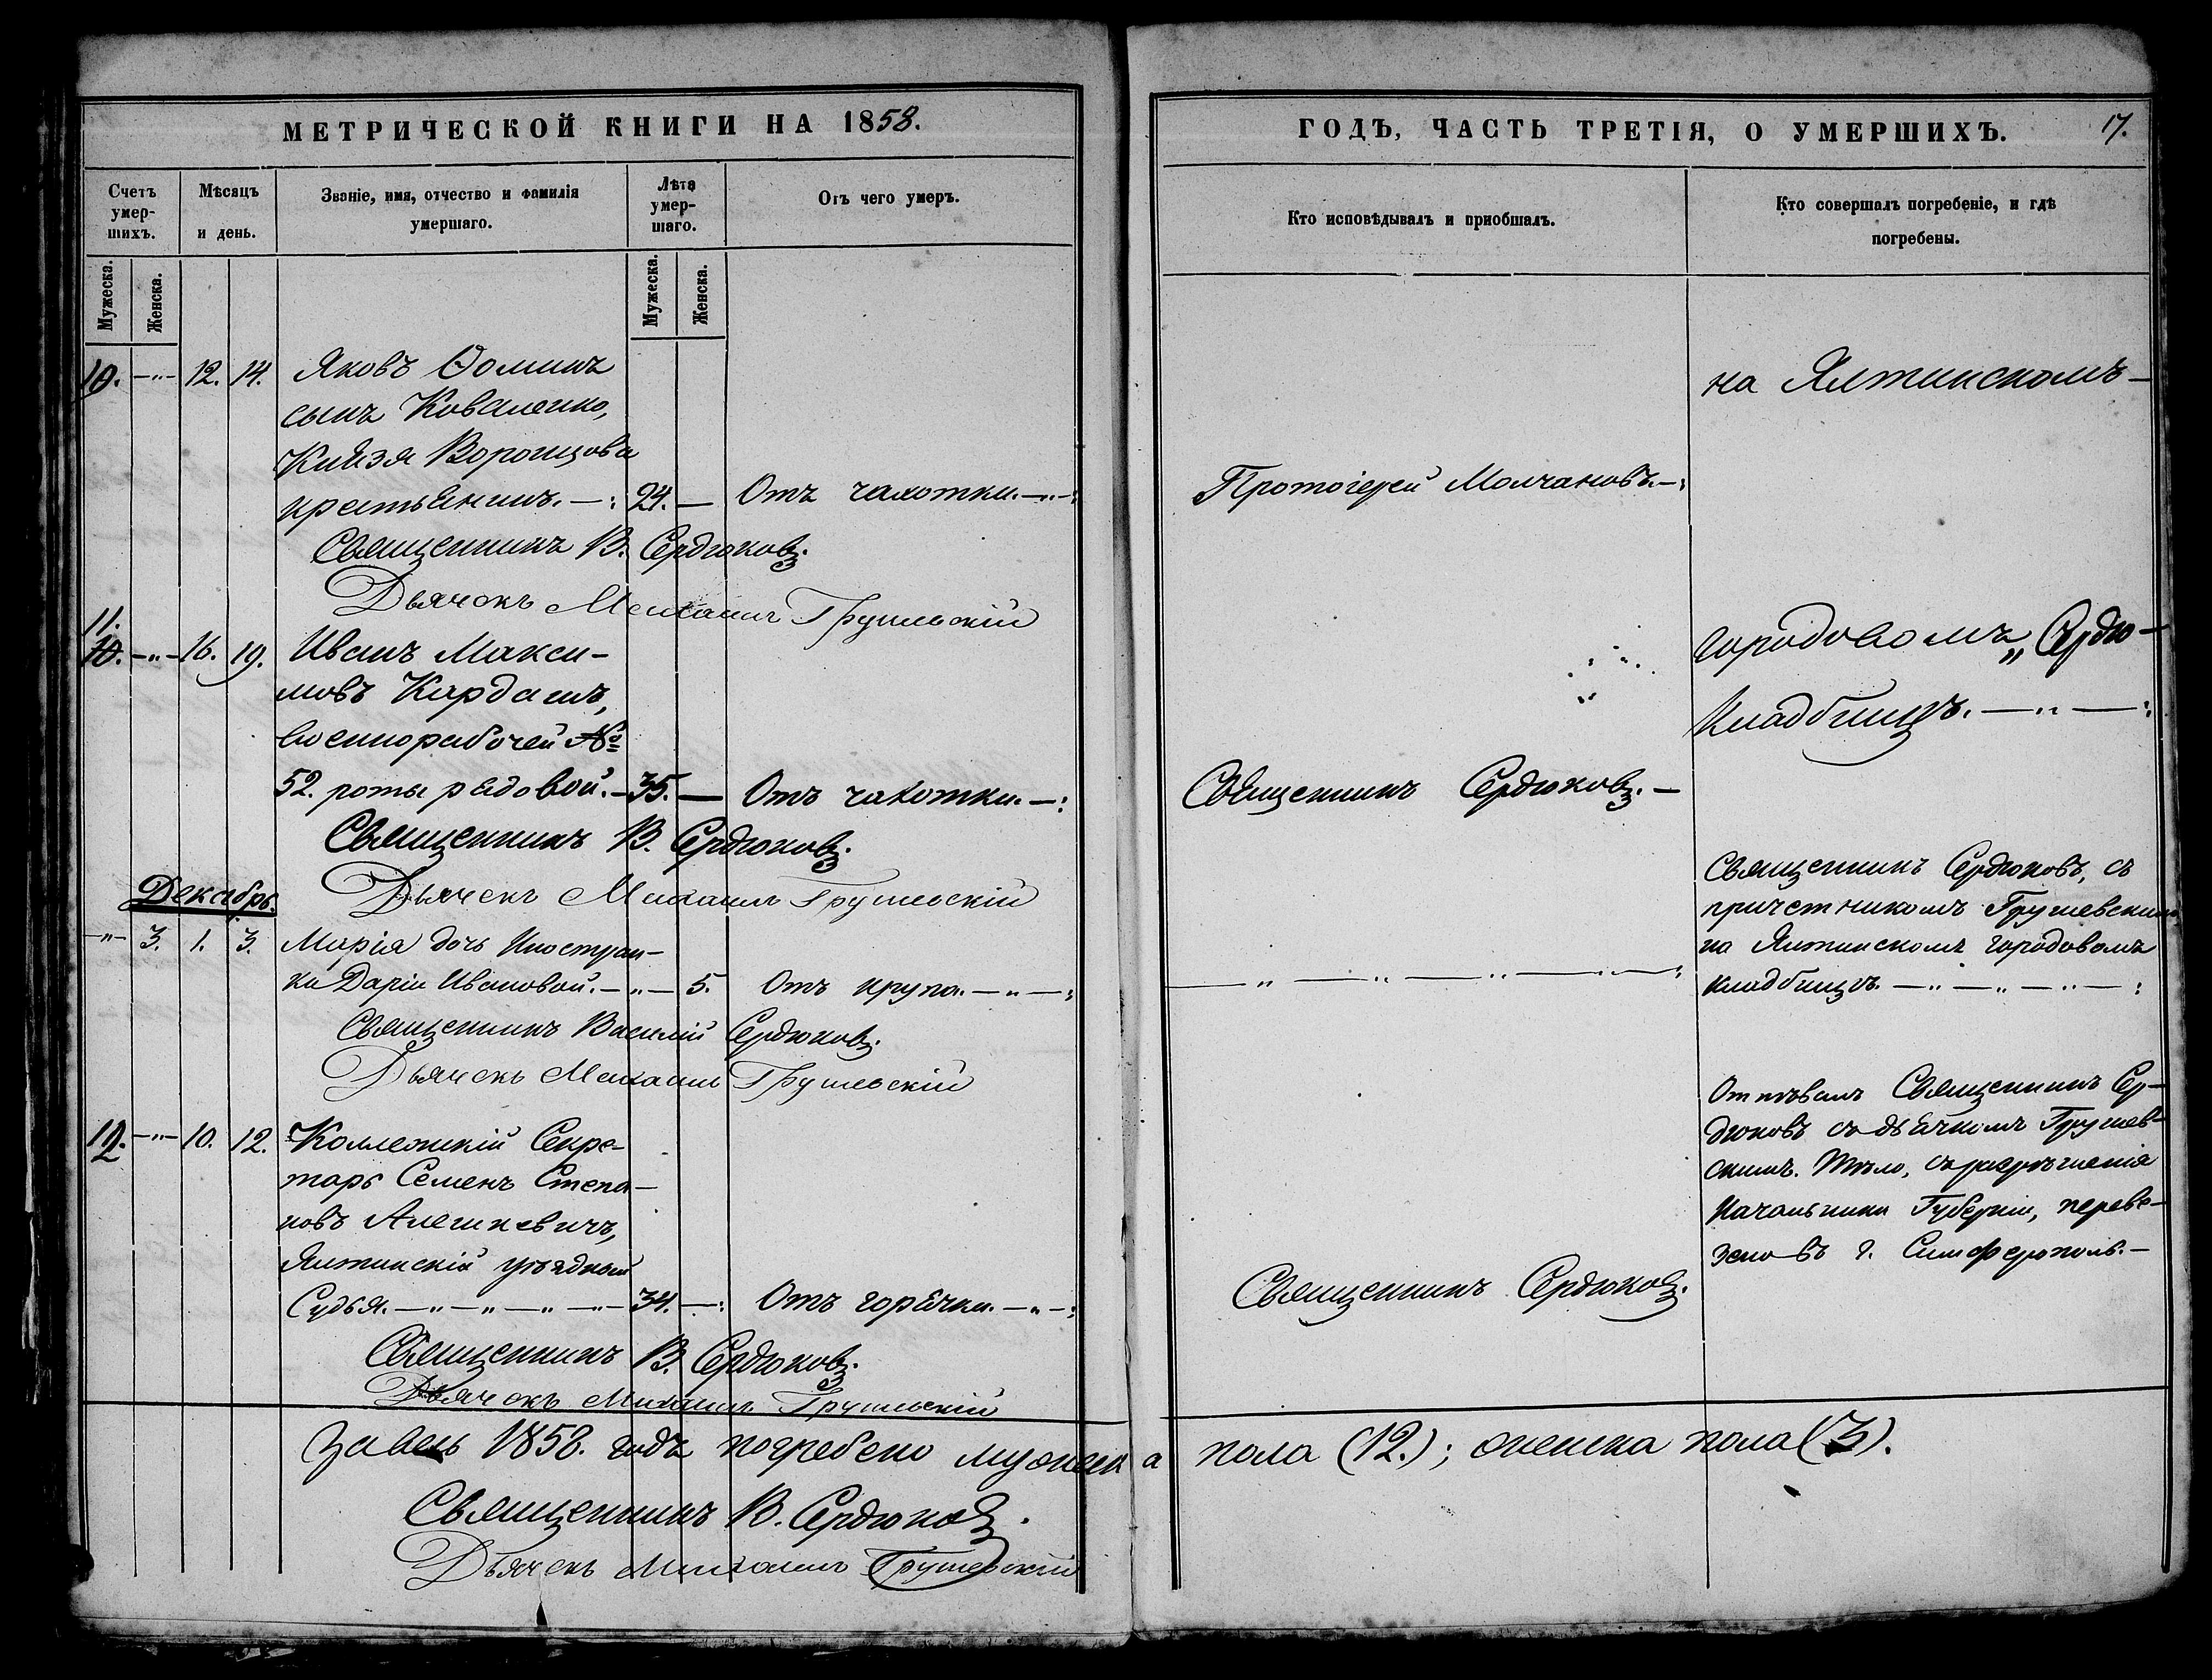 МЕТРИЧЕСКОЙ КНИГИ НА 1858.
Счетъ умер-шихъ.
Мѣсяцъ и день.
Званіе, имя, отчество и фамилія умершаго.
Лѣта умер-шаго.
Отъ чего умеръ.
Мужеска.
Женска.
Мужеска.
Женска.
10. —"— 12. 14. Яковъ Ѳоминъ
сынъ Коваленко,
Князя Воронцова
крестьянинъ. —: 24. — Отъ чахотки. —"—:
Священникъ В. Сердюковъ.
Дьячокъ Михаилъ Грушевскій
11.
10. —"— 16. 19. Иванъ Макси-
мовъ Кардашъ,
военнорабочей №
52. роты рядовой. — 35. — Отъ чахотки. —:
Священникъ В. Сердюковъ.
Дьячекъ Михаилъ Грушевскій
Декабрь.
—"— 3. 1. 3. Марія дочь Иностран-
ки Даріи Ивановой. —"— 5. Отъ крупа. —"—:
Священникъ Василій Сердюковъ.
Дьячекъ Михаилъ Грушевскій
12. —"— 10. 12. Коллежскій Секре-
тарь Семенъ Степа-
новъ Алешкевичъ,
Ялтинскій уѣздный
Судья. —"—"—"—"— 34. —: Отъ горячки. —"—:
Священникъ В. Сердюковъ.
Дьячокъ Михаилъ Грушевскій
За весь 1858. годъ погребено мужеска пола (12.); женска пола (3).
Священникъ В. Сердюковъ.
Дьячекъ Михаилъ Грушевскій
ГОДЪ, ЧАСТЬ ТРЕТІЯ, О УМЕРШИХЪ. 17.
Кто исповѣдывалъ и пріобщалъ.
Кто совершалъ погребеніе, и гдѣ
погребены.
на Ялтинскомъ —
Протоіерей Молчановъ. —:
городовомъ „Сердю—
Кладбищѣ. —"—:
Священникъ Сердюковъ. —
Священникъ Сердюковъ, съ
причетникомъ Грушевскимъ
на Ялтинскомъ городовомъ
кладбищѣ. —"—"—"—:
—"—"—"—:
Отпѣвалъ Священникъ Сер-
дюковъ съ дьячкомъ Грушев-
скимъ. Тѣло, съ разрѣшенія
Начальника Губерніи, переве-
зено въ г. Симферополь. —
Священникъ Сердюковъ.